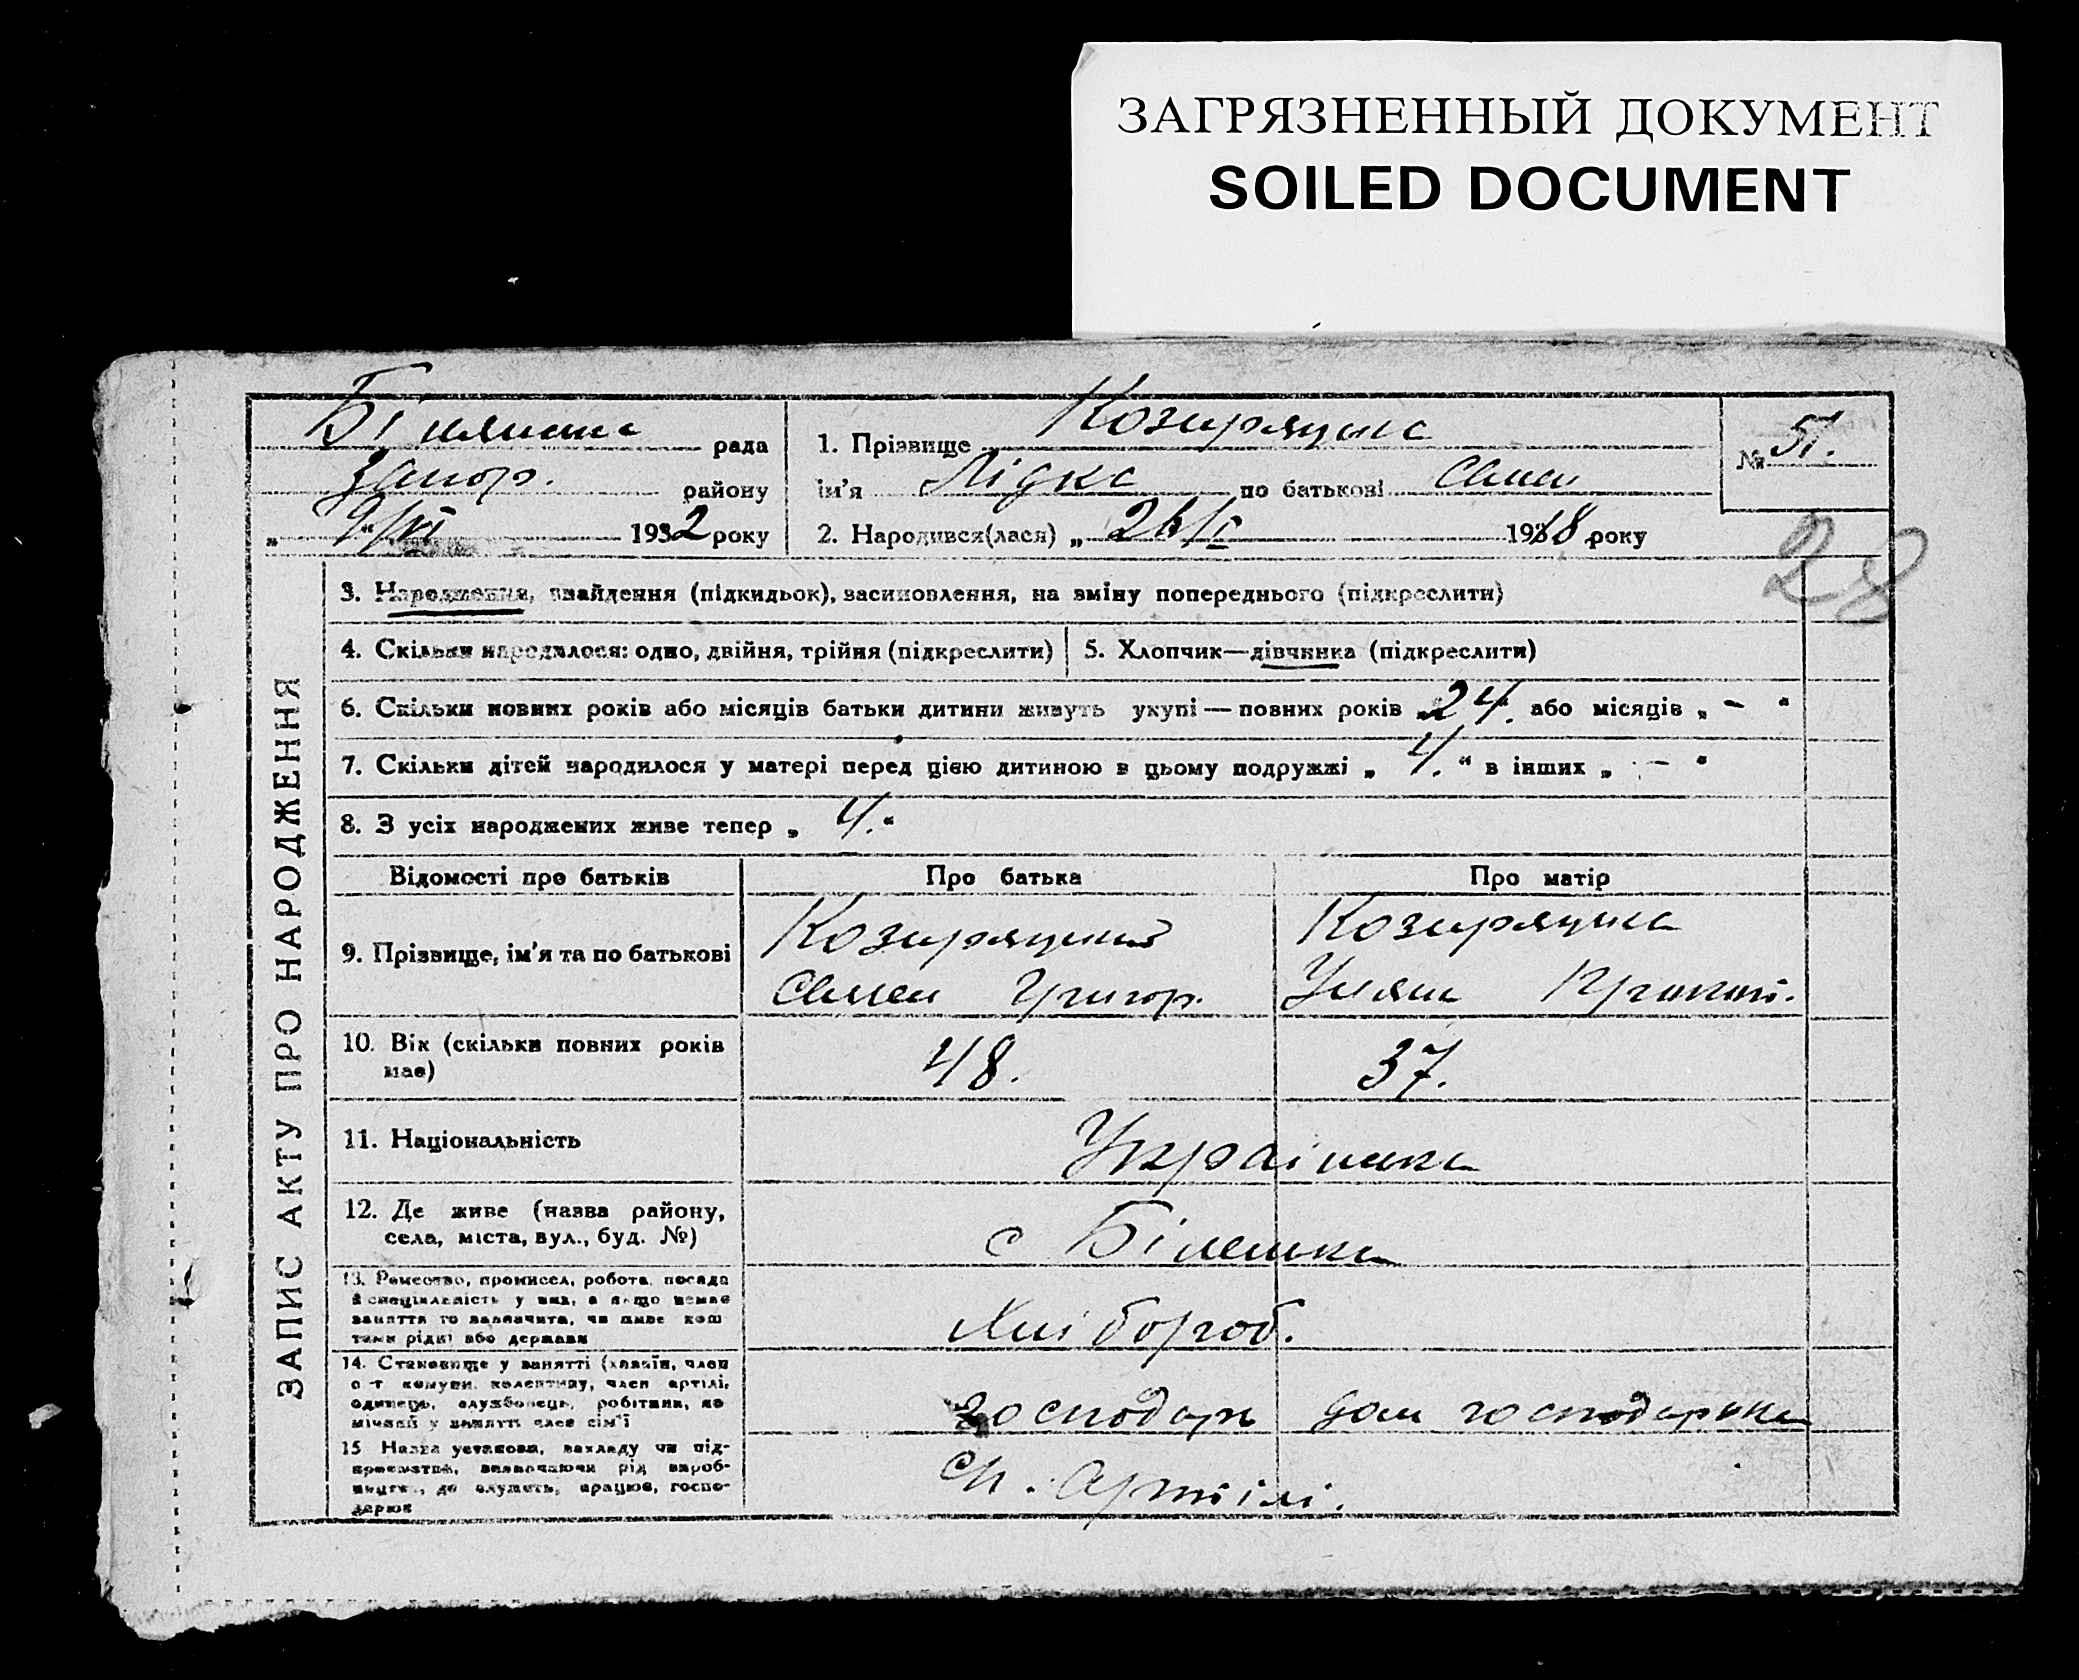 ЗАГРЯЗНЕННЫЙ ДОКУМЕНТ
SOILED DOCUMENT
рада
Запор. району
„ 9/ 1932 року
1. Прізвище Козиряцька
ім'я Лідка по батькові Семен
2. Народився(лася) „ 26/ 1918 року
№ 51.
28
ЗАПИС АКТУ ПРО НАРОДЖЕННЯ
3. Народження, знайдення (підкидьок), засиновлення, на зміну попереднього (підкреслити)
4. Скільки народилося: одно, двійня, трійня (підкреслити)
5. Хлопчик—дівчинка (підкреслити)
6. Скільки повних років або місяців батьки дитини живуть укупі — повних років „ 24. або місяців „ - "
7. Скільки дітей народилося у матері перед цією дитиною в цьому подружжі „ 4. " в інших „ - "
8. З усіх народжених живе тепер „ 4. "
Відомості про батьків Про батька Про матір
9. Прізвище, ім'я та по батькові
Козиряцький
Семен Григор.
Козиряцька
Уляна
10. Вік (скільки повних років
має)
48. 37.
11. Національність
Українка
12. Де живе (назва району,
села, міста, вул., буд. №)
с Біленька
13. Ремество, промисел, робота, посада
й спеціяльність у них, а якщо немає
заняття то зазначити, чи живе кош
тами рідні або держави
Хлібороб.
14. Становище у занятті (хазяїн, член
с-г комуни, колективу, член артілі,
одинець, службовець, робітник, до
мічний у занятті член сім'ї
господарь дом господарька
15 Назва установи, закладу чи під-
приємства, зазначаючи рід вироб-
ництва, де служить, працює, госпо-
дарює
артілі.